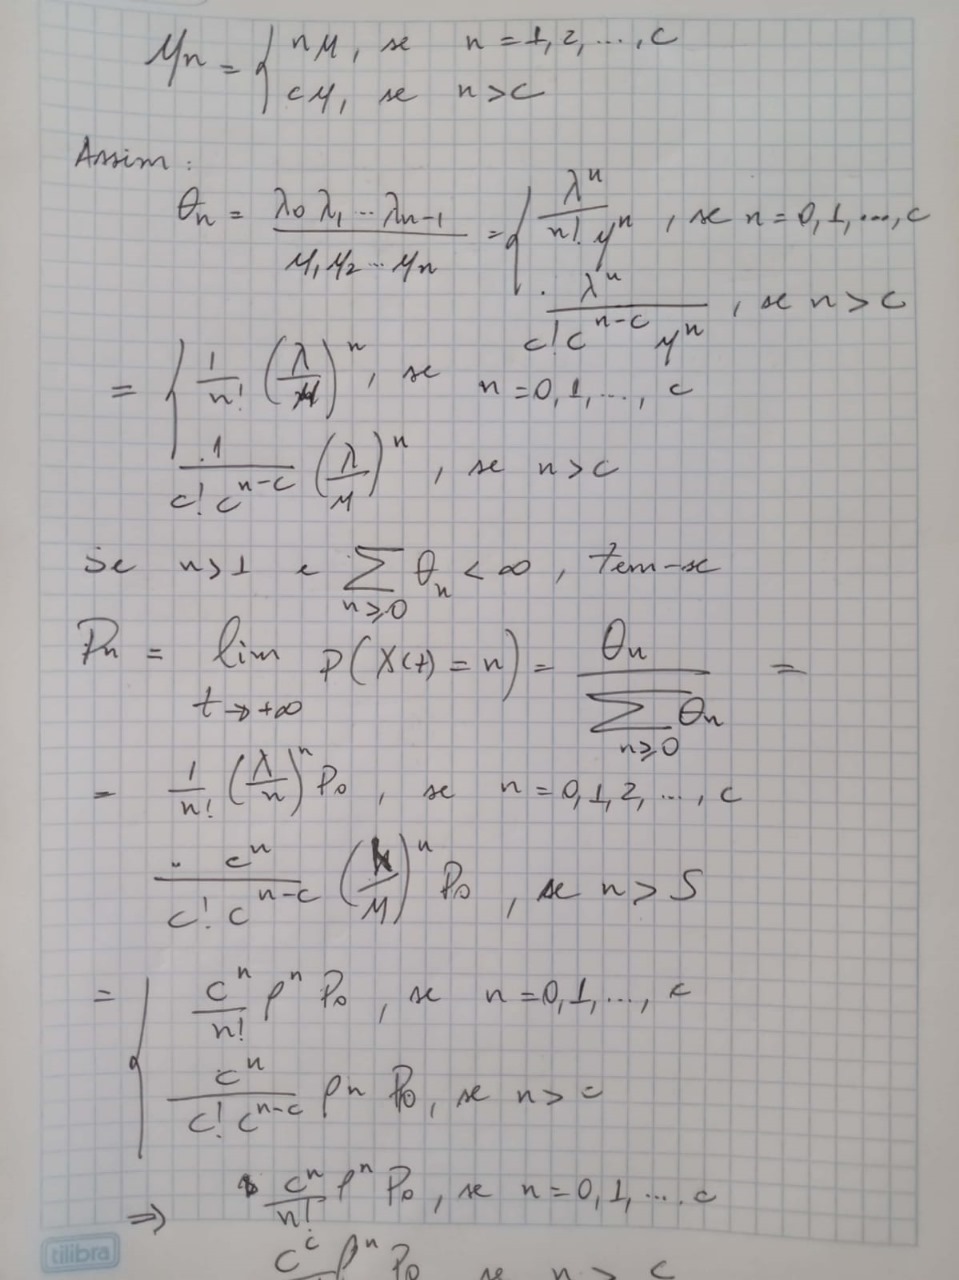 μn = { nμ, se n = 1, 2, ..., c
cμ, se n > c
Assim:
θn = λ0 λ1 ... λn-1 / μ1 μ2 ... μn = { λ^n / n! μ^n, se n = 0, 1, ..., c
λ^n / c! c^(n-c) μ^n, se n > c
= { 1/n! (λ/μ)^n, se n = 0, 1, ..., c
1 / c! c^(n-c) (λ/μ)^n, se n > c
Se n > 1 e Σ n≥0 θn < ∞, tem-se
Pn = lim t→+∞ P(X(t) = n) = θn / Σ n≥0 θn =
= 1/n! (λ/n)^n P0, se n = 0, 1, 2, ..., c
c^n / c! c^(n-c) (λ/μ)^n P0, se n > S
= { c^n/n! ρ^n P0, se n = 0, 1, ..., c
c^n / c! c^(n-c) ρn P0, se n > c
⇒ c^n/n! ρ^n P0, se n = 0, 1, ... c
c^c ρ^n P0 se n > c
tilibra